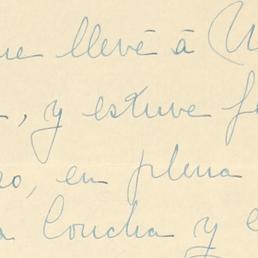 ue llevé á
, y estuve
o, en plena
a Concha y